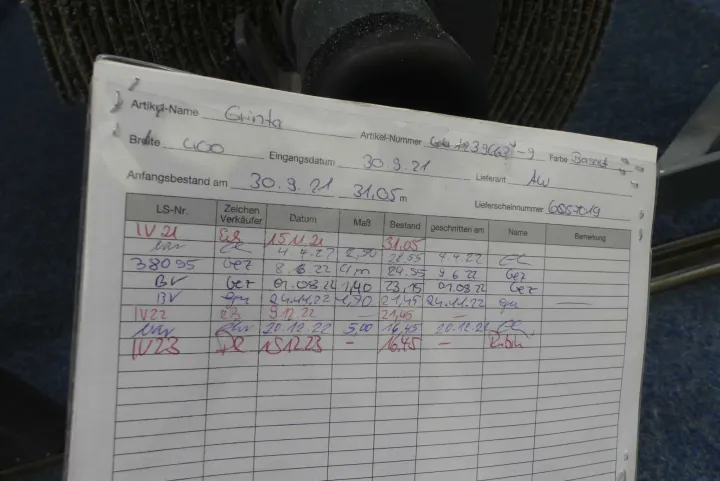 Artikel-Name Grinta Artikel-Nummer Farbe
Breite 400 Eingangsdatum 30.9.21 Lieferant AW
Anfangsbestand am 30.9.21 31,05 m Lieferscheinnummer 6857019
LS-Nr. Zeichen Verkäufer Datum Maß Bestand geschnitten am Name Bemerkung
IV 21 15.11.21 31.05
4.4.22 2,50 28.55 4.4.22
38095 bez 8.6.22 4m 24.55 9.6.22 bez
BV bez 01.08.22 1,40 23,15 01.08.22 bez
BV gu 24.11.22 1,70 21,45 24.11.22 gu —
IV22 9.12.22 — 21,45 —
20.12.22 5,00 16,45 20.12.22
IV23 15.12.23 — 16.45 —